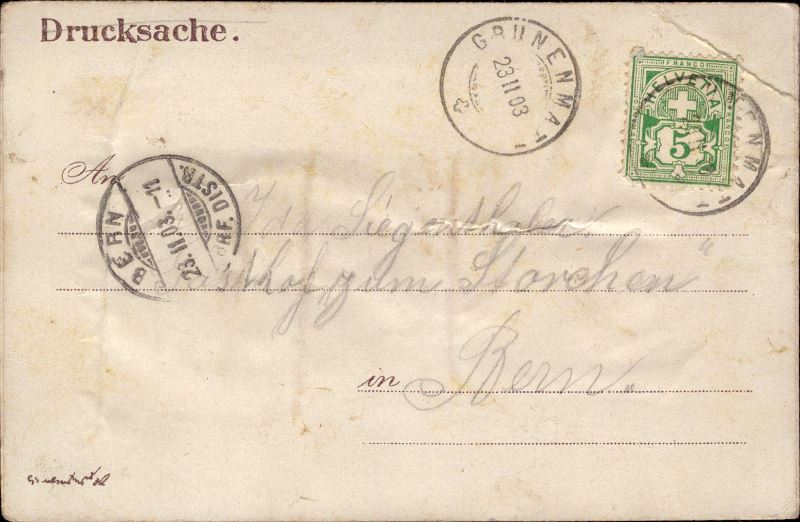 Drucksache.
GRÜNENMATT
23 II 03
FRANCO
HELVETIA
5
ENMATT
An
BERN
BRF. DISTR.
23. II. 03. – 11
Ida Siegenthaler
Gasthof zum Storchen"
in Bern